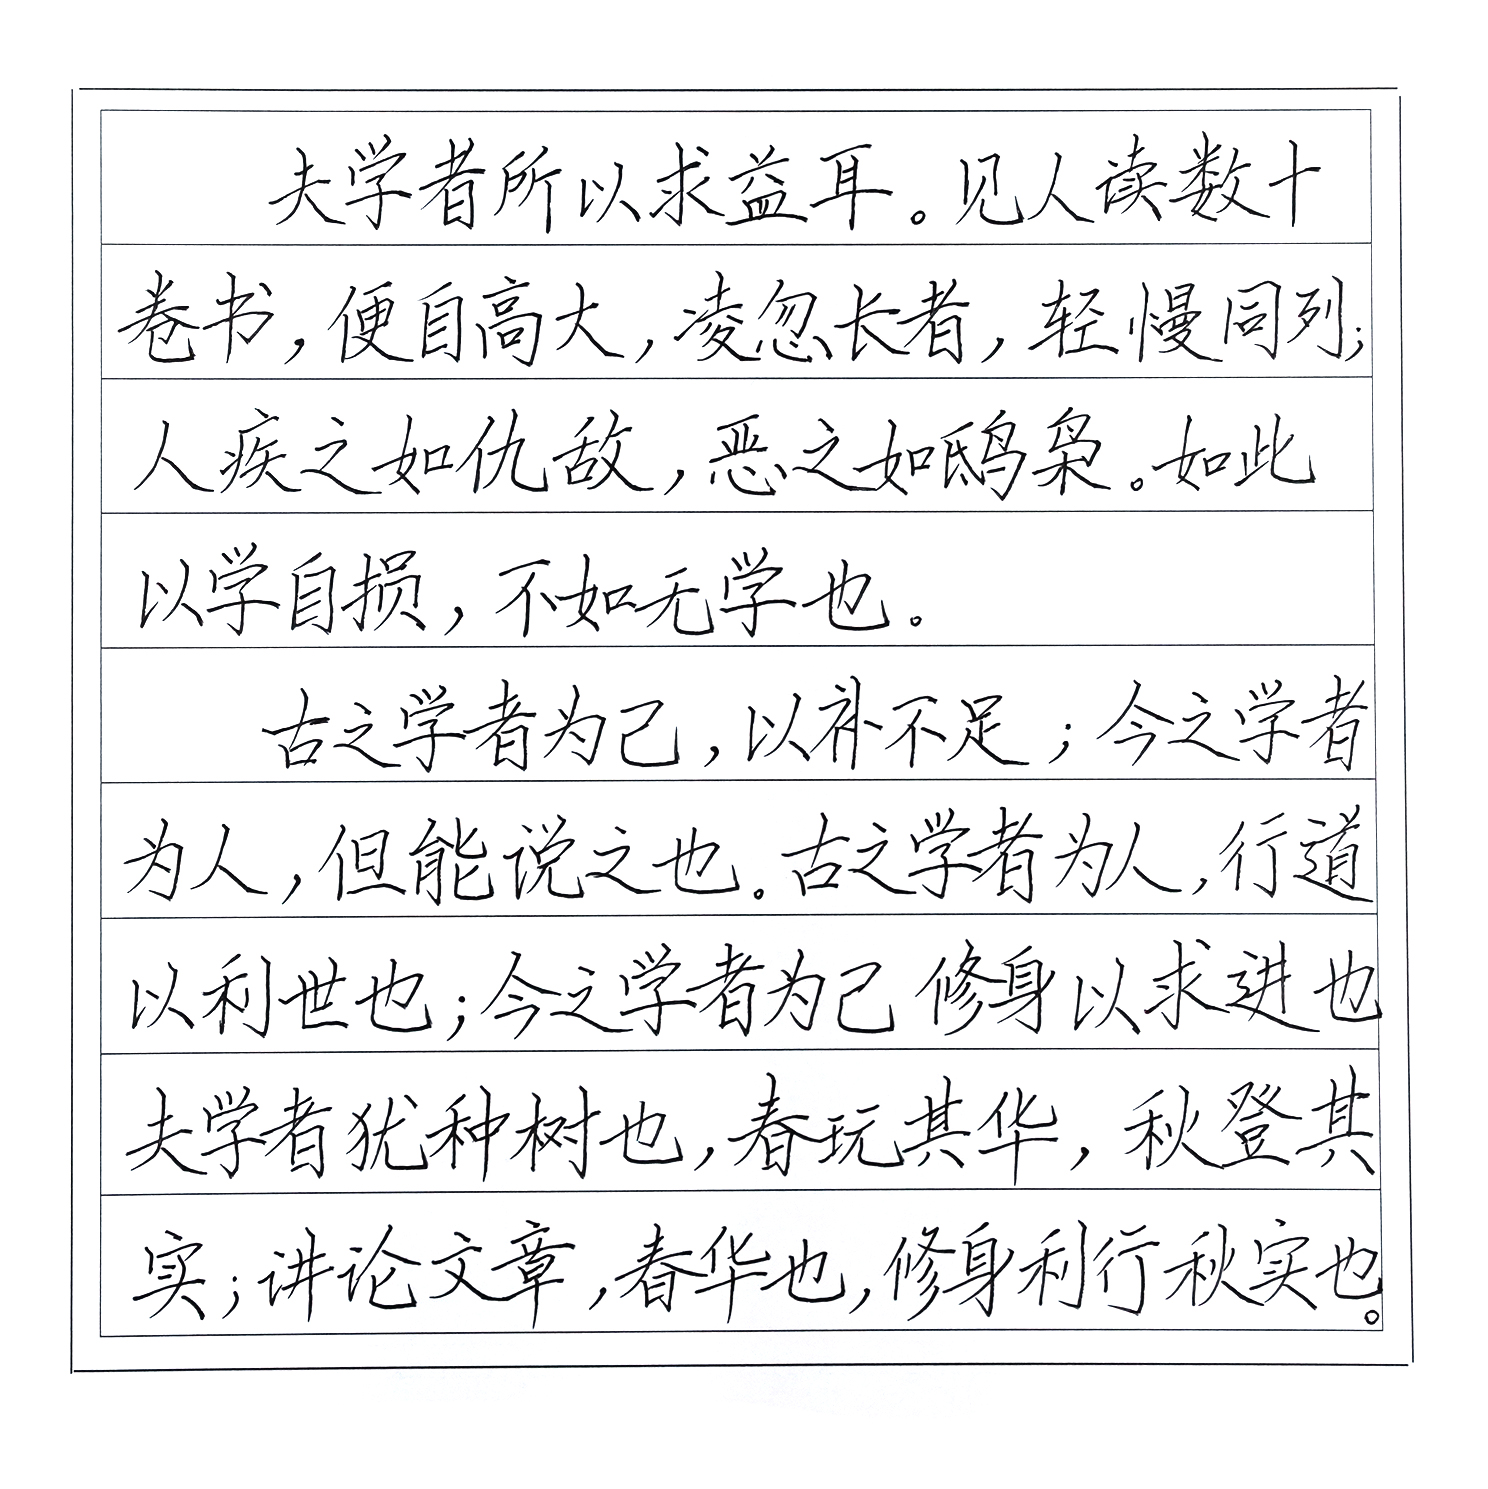 夫学者所以求益耳。见人读数十
卷书，便自高大，凌忽长者，轻慢同列；
人疾之如仇敌，恶之如鸱枭。如此
以学自损，不如无学也。
古之学者为己，以补不足；今之学者
为人，但能说之也。古之学者为人，行道
以利世也；今之学者为己修身以求进也
夫学者犹种树也，春玩其华，秋登其
实；讲论文章，春华也，修身利行秋实也。